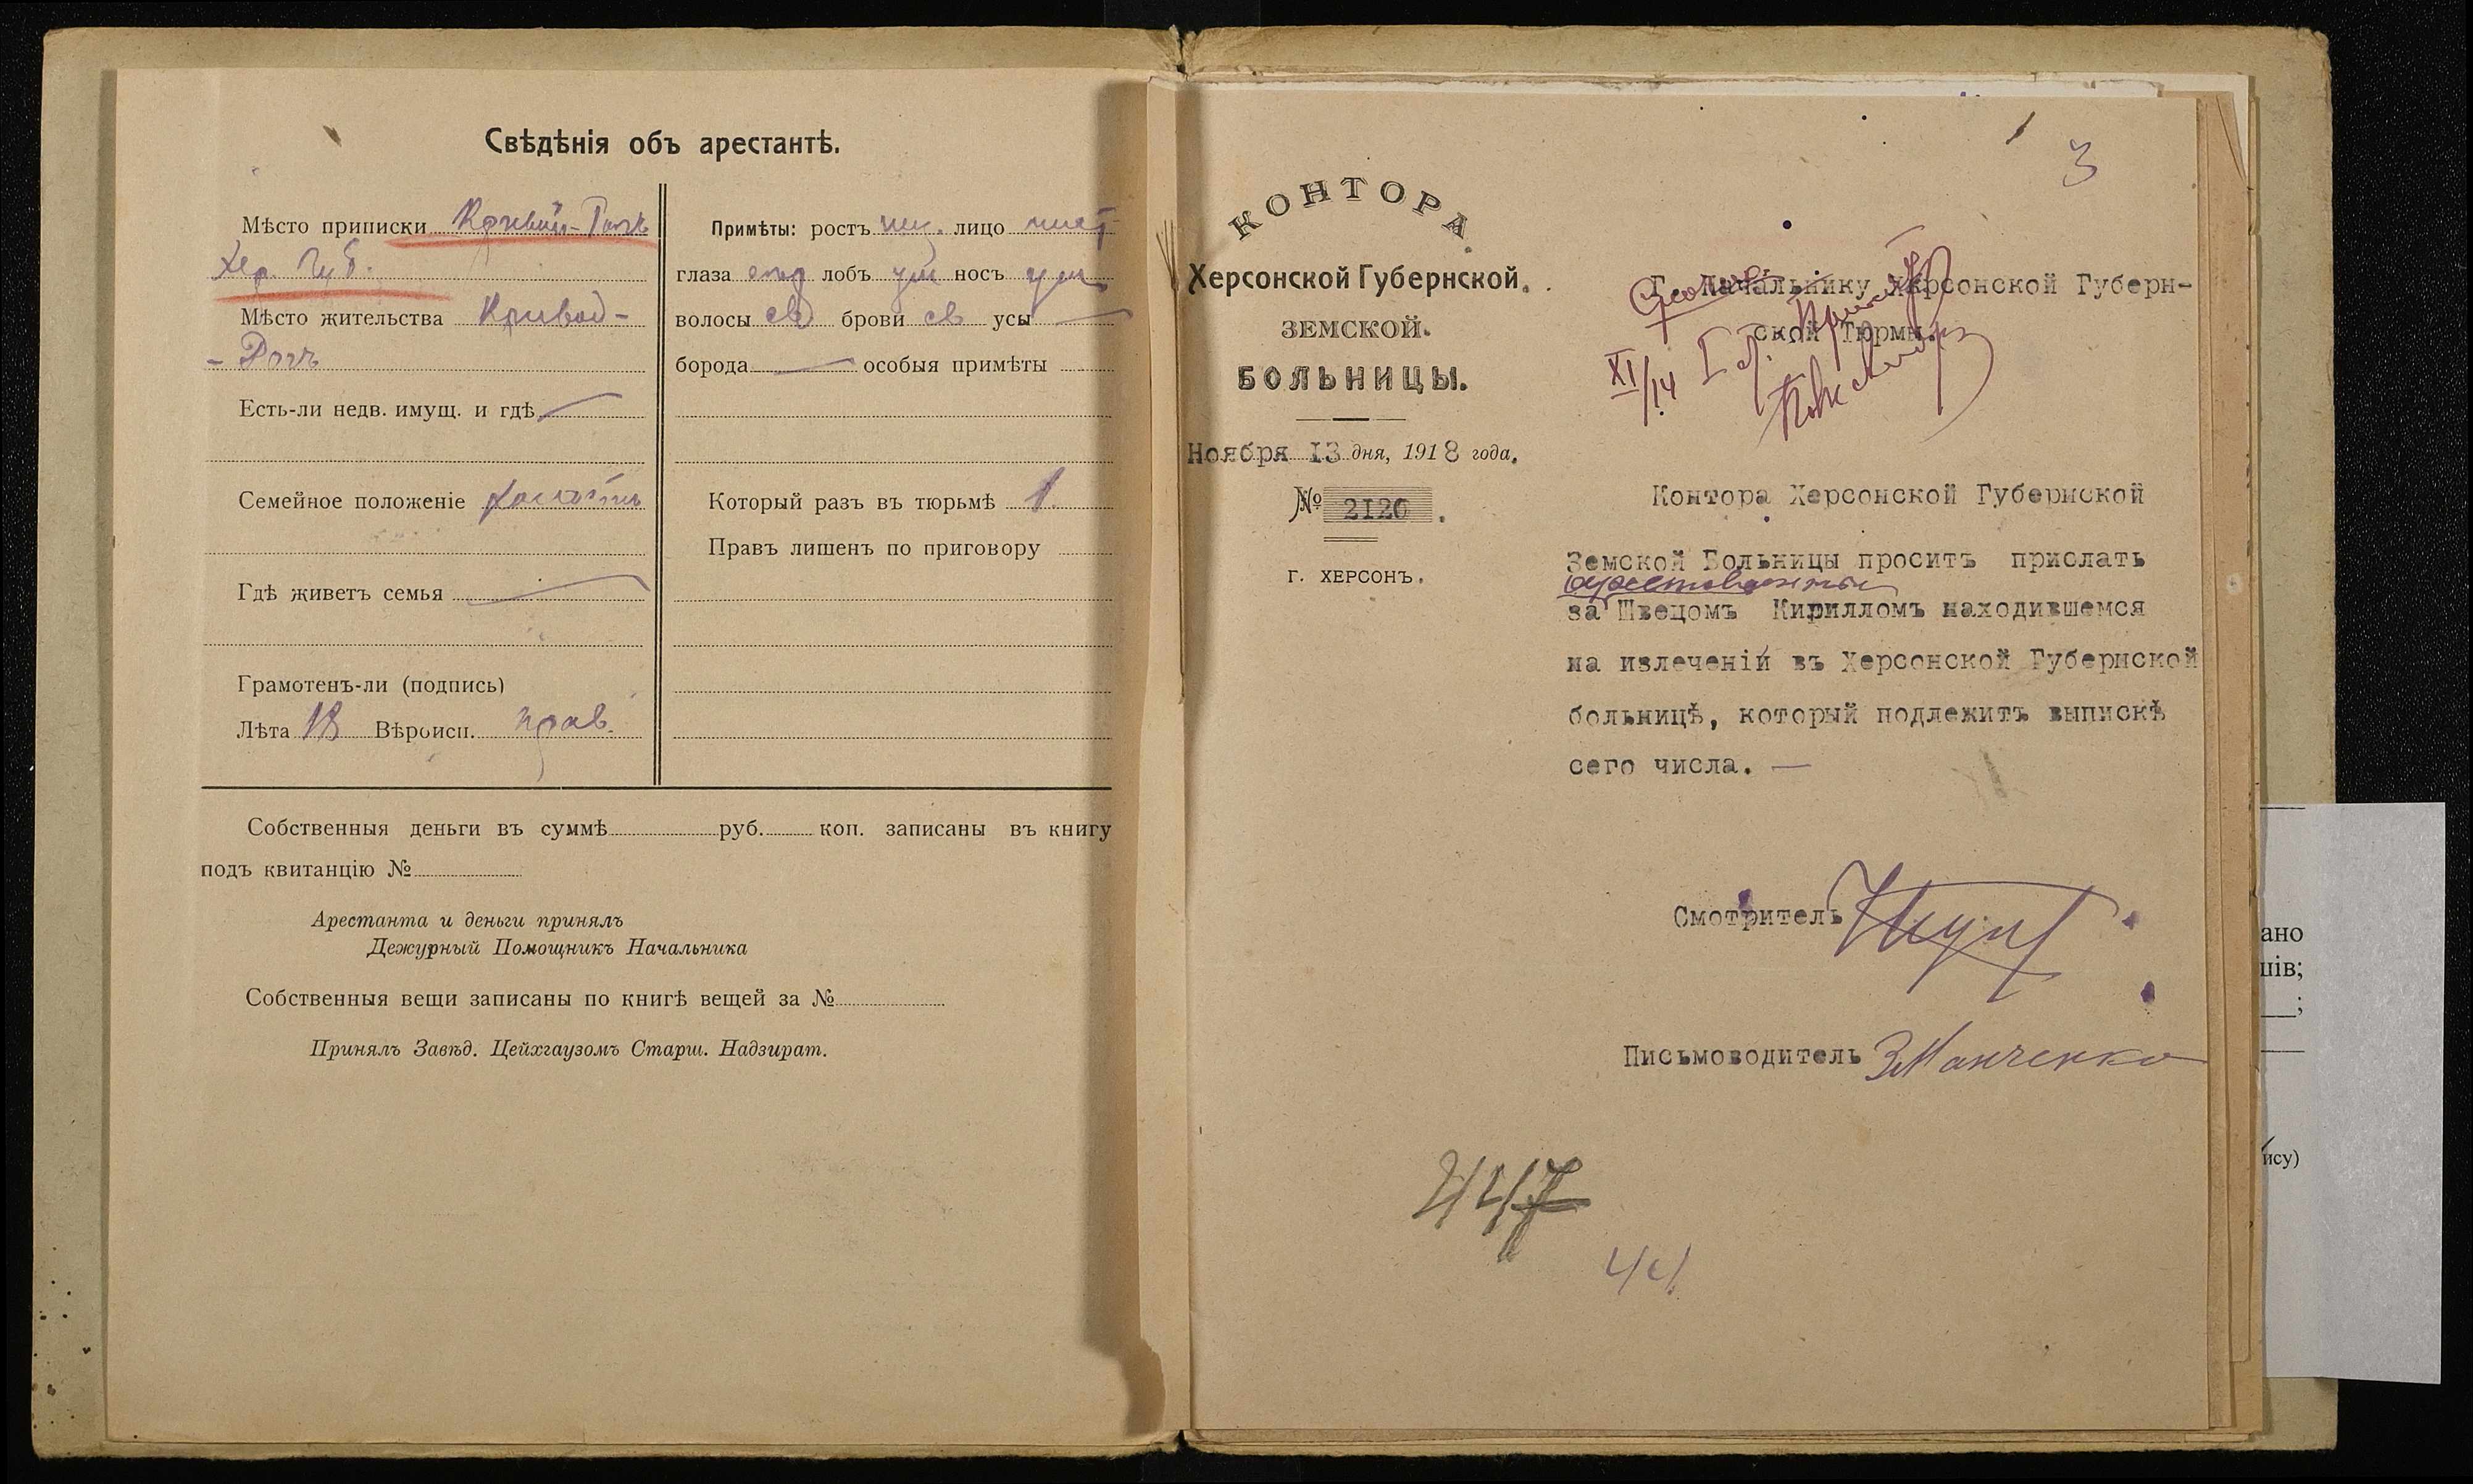 Свѣдѣнія объ арестантѣ.
Мѣсто приписки Кривый-Рогъ
Хер. Губ.
Мѣсто жительства Кривой-
- Рогъ
Есть-ли недв. имущ. и гдѣ
Семейное положеніе холостъ
Гдѣ живетъ семья
Грамотенъ-ли (подпись)
Лѣта 18 Вѣроисп. прав.
Примѣты: ростъ лицо чист
глаза лобъ ум носъ ум
волосы св брови св усы —
борода — особыя примѣты
Который разъ въ тюрьмѣ 1.
Правъ лишенъ по приговору
Собственныя деньги въ суммѣ руб. коп. записаны въ книгу
подъ квитанцію №
Арестанта и деньги принялъ
Дежурный Помощникъ Начальника
Собственныя вещи записаны по книгѣ вещей за №
Принялъ Завѣд. Цейхгаузомъ Старш. Надзират.
КОНТОРА
Херсонской Губернской.
ЗЕМСКОЙ.
БОЛЬНИЦЫ.
Ноября 13 дня, 1918 года.
№ 2120.
г. ХЕРСОНЪ.
3
Г. Начальнику Херсонской Губерн-
ской Тюрмы.
XI/14
Контора Херсонской Губернской
Земской Больницы проситъ прислать
арестованным
за Швецомъ Кирилломъ находившемся
на излеченій въ Херсонской Губернской
больницѣ, который подлежитъ выпискѣ
сего числа. —
Смотритель
Письмоводитель ЗМанченко
447
44
ано
шів;
;
ису)